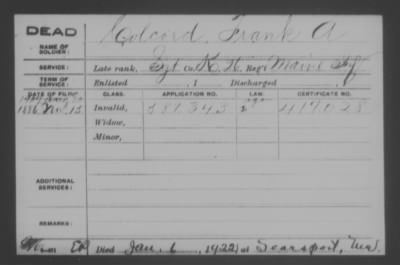 DEAD
NAME OF SOLDIER:
Colcord, Frank A
SERVICE:
Late rank, Sgt Co. K, Reg't Maine Inf
TERM OF SERVICE:
Enlisted , 1 Discharged , 1
DATE OF FILING. CLASS. APPLICATION NO. LAW. CERTIFICATE NO.
1886 Nov. 12 Invalid, 587343 417028
Widow,
Minor,
ADDITIONAL SERVICES:
REMARKS:
Died Jan. 6, 1922, at Searsport, Me.